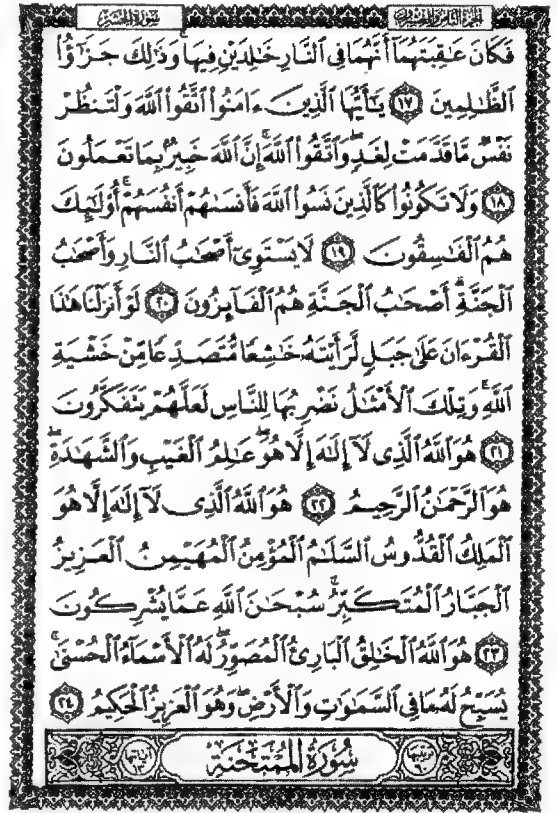 الجزء الثامن والعشرون سورة الحشر
فَكَانَ عَـٰقِبَتَهُمَآ أَنَّهُمَا فِى ٱلنَّارِ خَـٰلِدَيْنِ فِيهَا ۚ وَذَٰلِكَ جَزَٰٓؤُا۟
ٱلظَّـٰلِمِينَ ١٧ يَـٰٓأَيُّهَا ٱلَّذِينَ ءَامَنُوا۟ ٱتَّقُوا۟ ٱللَّهَ وَلْتَنظُرْ
نَفْسٌ مَّا قَدَّمَتْ لِغَدٍ ۖ وَٱتَّقُوا۟ ٱللَّهَ ۚ إِنَّ ٱللَّهَ خَبِيرٌۢ بِمَا تَعْمَلُونَ
١٨ وَلَا تَكُونُوا۟ كَٱلَّذِينَ نَسُوا۟ ٱللَّهَ فَأَنسَىٰهُمْ أَنفُسَهُمْ ۚ أُو۟لَـٰٓئِكَ
هُمُ ٱلْفَـٰسِقُونَ ١٩ لَا يَسْتَوِىٓ أَصْحَـٰبُ ٱلنَّارِ وَأَصْحَـٰبُ
ٱلْجَنَّةِ ۚ أَصْحَـٰبُ ٱلْجَنَّةِ هُمُ ٱلْفَآئِزُونَ ٢٠ لَوْ أَنزَلْنَا هَـٰذَا
ٱلْقُرْءَانَ عَلَىٰ جَبَلٍ لَّرَأَيْتَهُۥ خَـٰشِعًا مُّتَصَدِّعًا مِّنْ خَشْيَةِ
ٱللَّهِ ۚ وَتِلْكَ ٱلْأَمْثَـٰلُ نَضْرِبُهَا لِلنَّاسِ لَعَلَّهُمْ يَتَفَكَّرُونَ
٢١ هُوَ ٱللَّهُ ٱلَّذِى لَآ إِلَـٰهَ إِلَّا هُوَ ۖ عَـٰلِمُ ٱلْغَيْبِ وَٱلشَّهَـٰدَةِ ۖ
هُوَ ٱلرَّحْمَـٰنُ ٱلرَّحِيمُ ٢٢ هُوَ ٱللَّهُ ٱلَّذِى لَآ إِلَـٰهَ إِلَّا هُوَ
ٱلْمَلِكُ ٱلْقُدُّوسُ ٱلسَّلَـٰمُ ٱلْمُؤْمِنُ ٱلْمُهَيْمِنُ ٱلْعَزِيزُ
ٱلْجَبَّارُ ٱلْمُتَكَبِّرُ ۚ سُبْحَـٰنَ ٱللَّهِ عَمَّا يُشْرِكُونَ
٢٣ هُوَ ٱللَّهُ ٱلْخَـٰلِقُ ٱلْبَارِئُ ٱلْمُصَوِّرُ ۖ لَهُ ٱلْأَسْمَآءُ ٱلْحُسْنَىٰ ۚ
يُسَبِّحُ لَهُۥ مَا فِى ٱلسَّمَـٰوَٰتِ وَٱلْأَرْضِ ۖ وَهُوَ ٱلْعَزِيزُ ٱلْحَكِيمُ ٢٤
ترتيبها ٦٠ سُورَةُ الْمُمْتَحَنَةِ آياتها ١٣